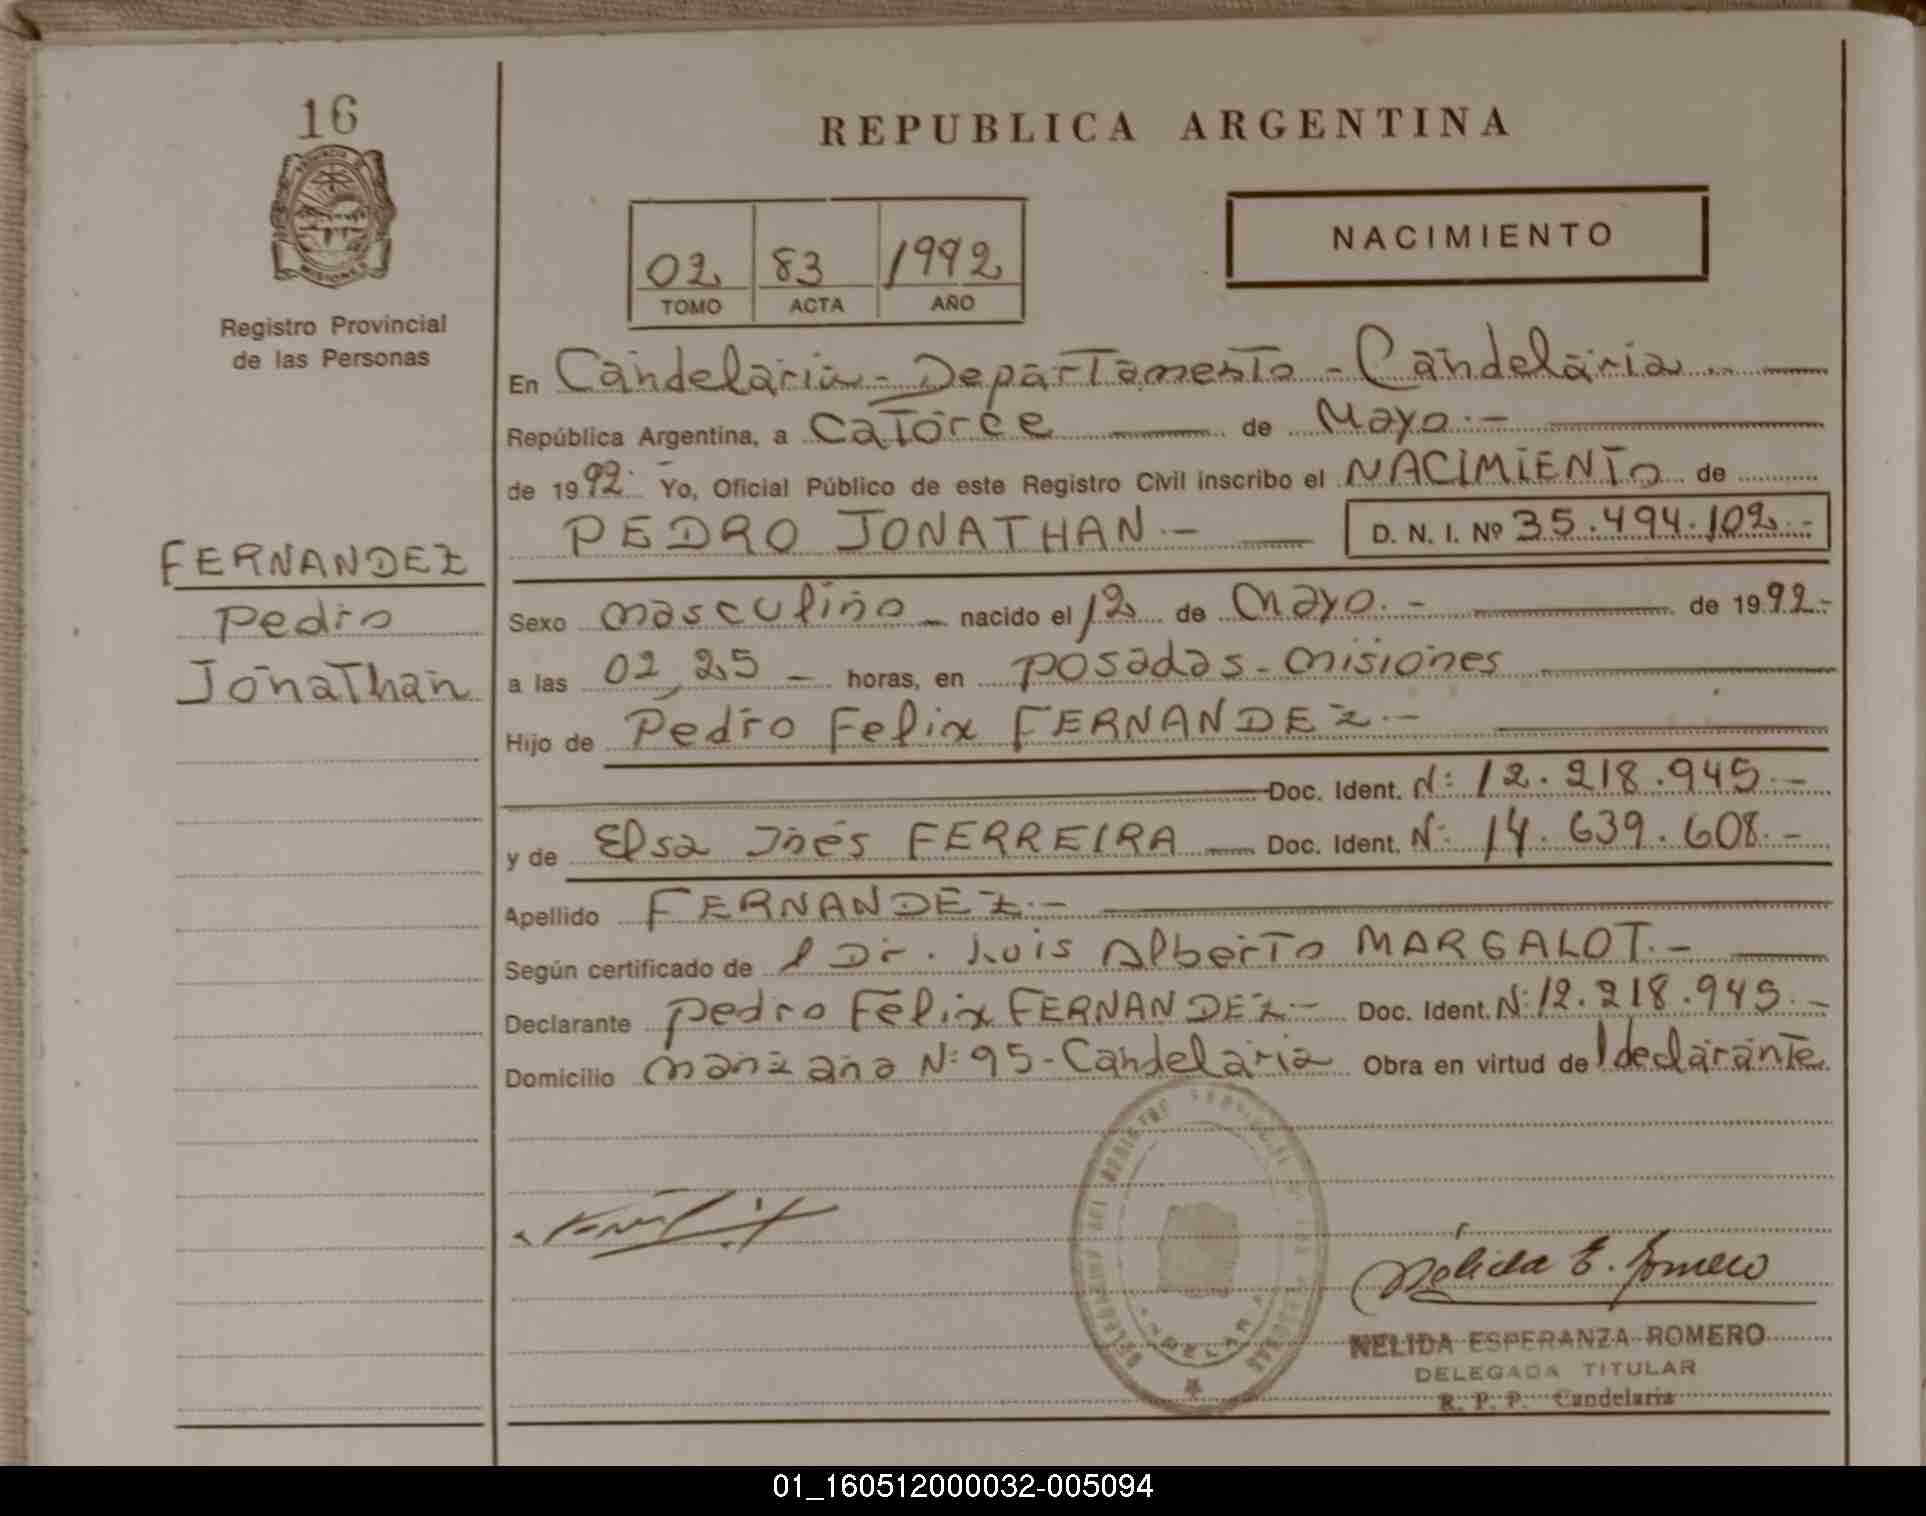 16
PROVINCIA DE
MISIONES
Registro Provincial
de las Personas
FERNANDEZ
Pedro
Jonathan
REPUBLICA ARGENTINA
02 83 1992
TOMO ACTA AÑO
NACIMIENTO
En Candelaria - Departamento - Candelaria
República Argentina, a Catorce de Mayo.-
de 1992. Yo, Oficial Público de este Registro Civil inscribo el NACIMIENTO de
PEDRO JONATHAN.- D. N. I. Nº 35.494.102.-
Sexo masculino nacido el 12 de Mayo.- de 1992.-
a las 02,25 - horas, en Posadas - Misiones
Hijo de Pedro Felix FERNANDEZ.-
Doc. Ident. Nº: 12.218.945.-
y de Elsa Inés FERREIRA Doc. Ident. Nº: 14.639.608.-
Apellido FERNANDEZ.-
Según certificado de l Dr. Luis Alberto MARGALOT.-
Declarante Pedro Felix FERNANDEZ.- Doc. Ident. Nº: 12.218.945.-
Domicilio Manzana Nº: 95 - Candelaria Obra en virtud de l declarante
Nélida E. Romero
NELIDA ESPERANZA ROMERO
DELEGADA TITULAR
R. P. P. Candelaria
01_160512000032-005094